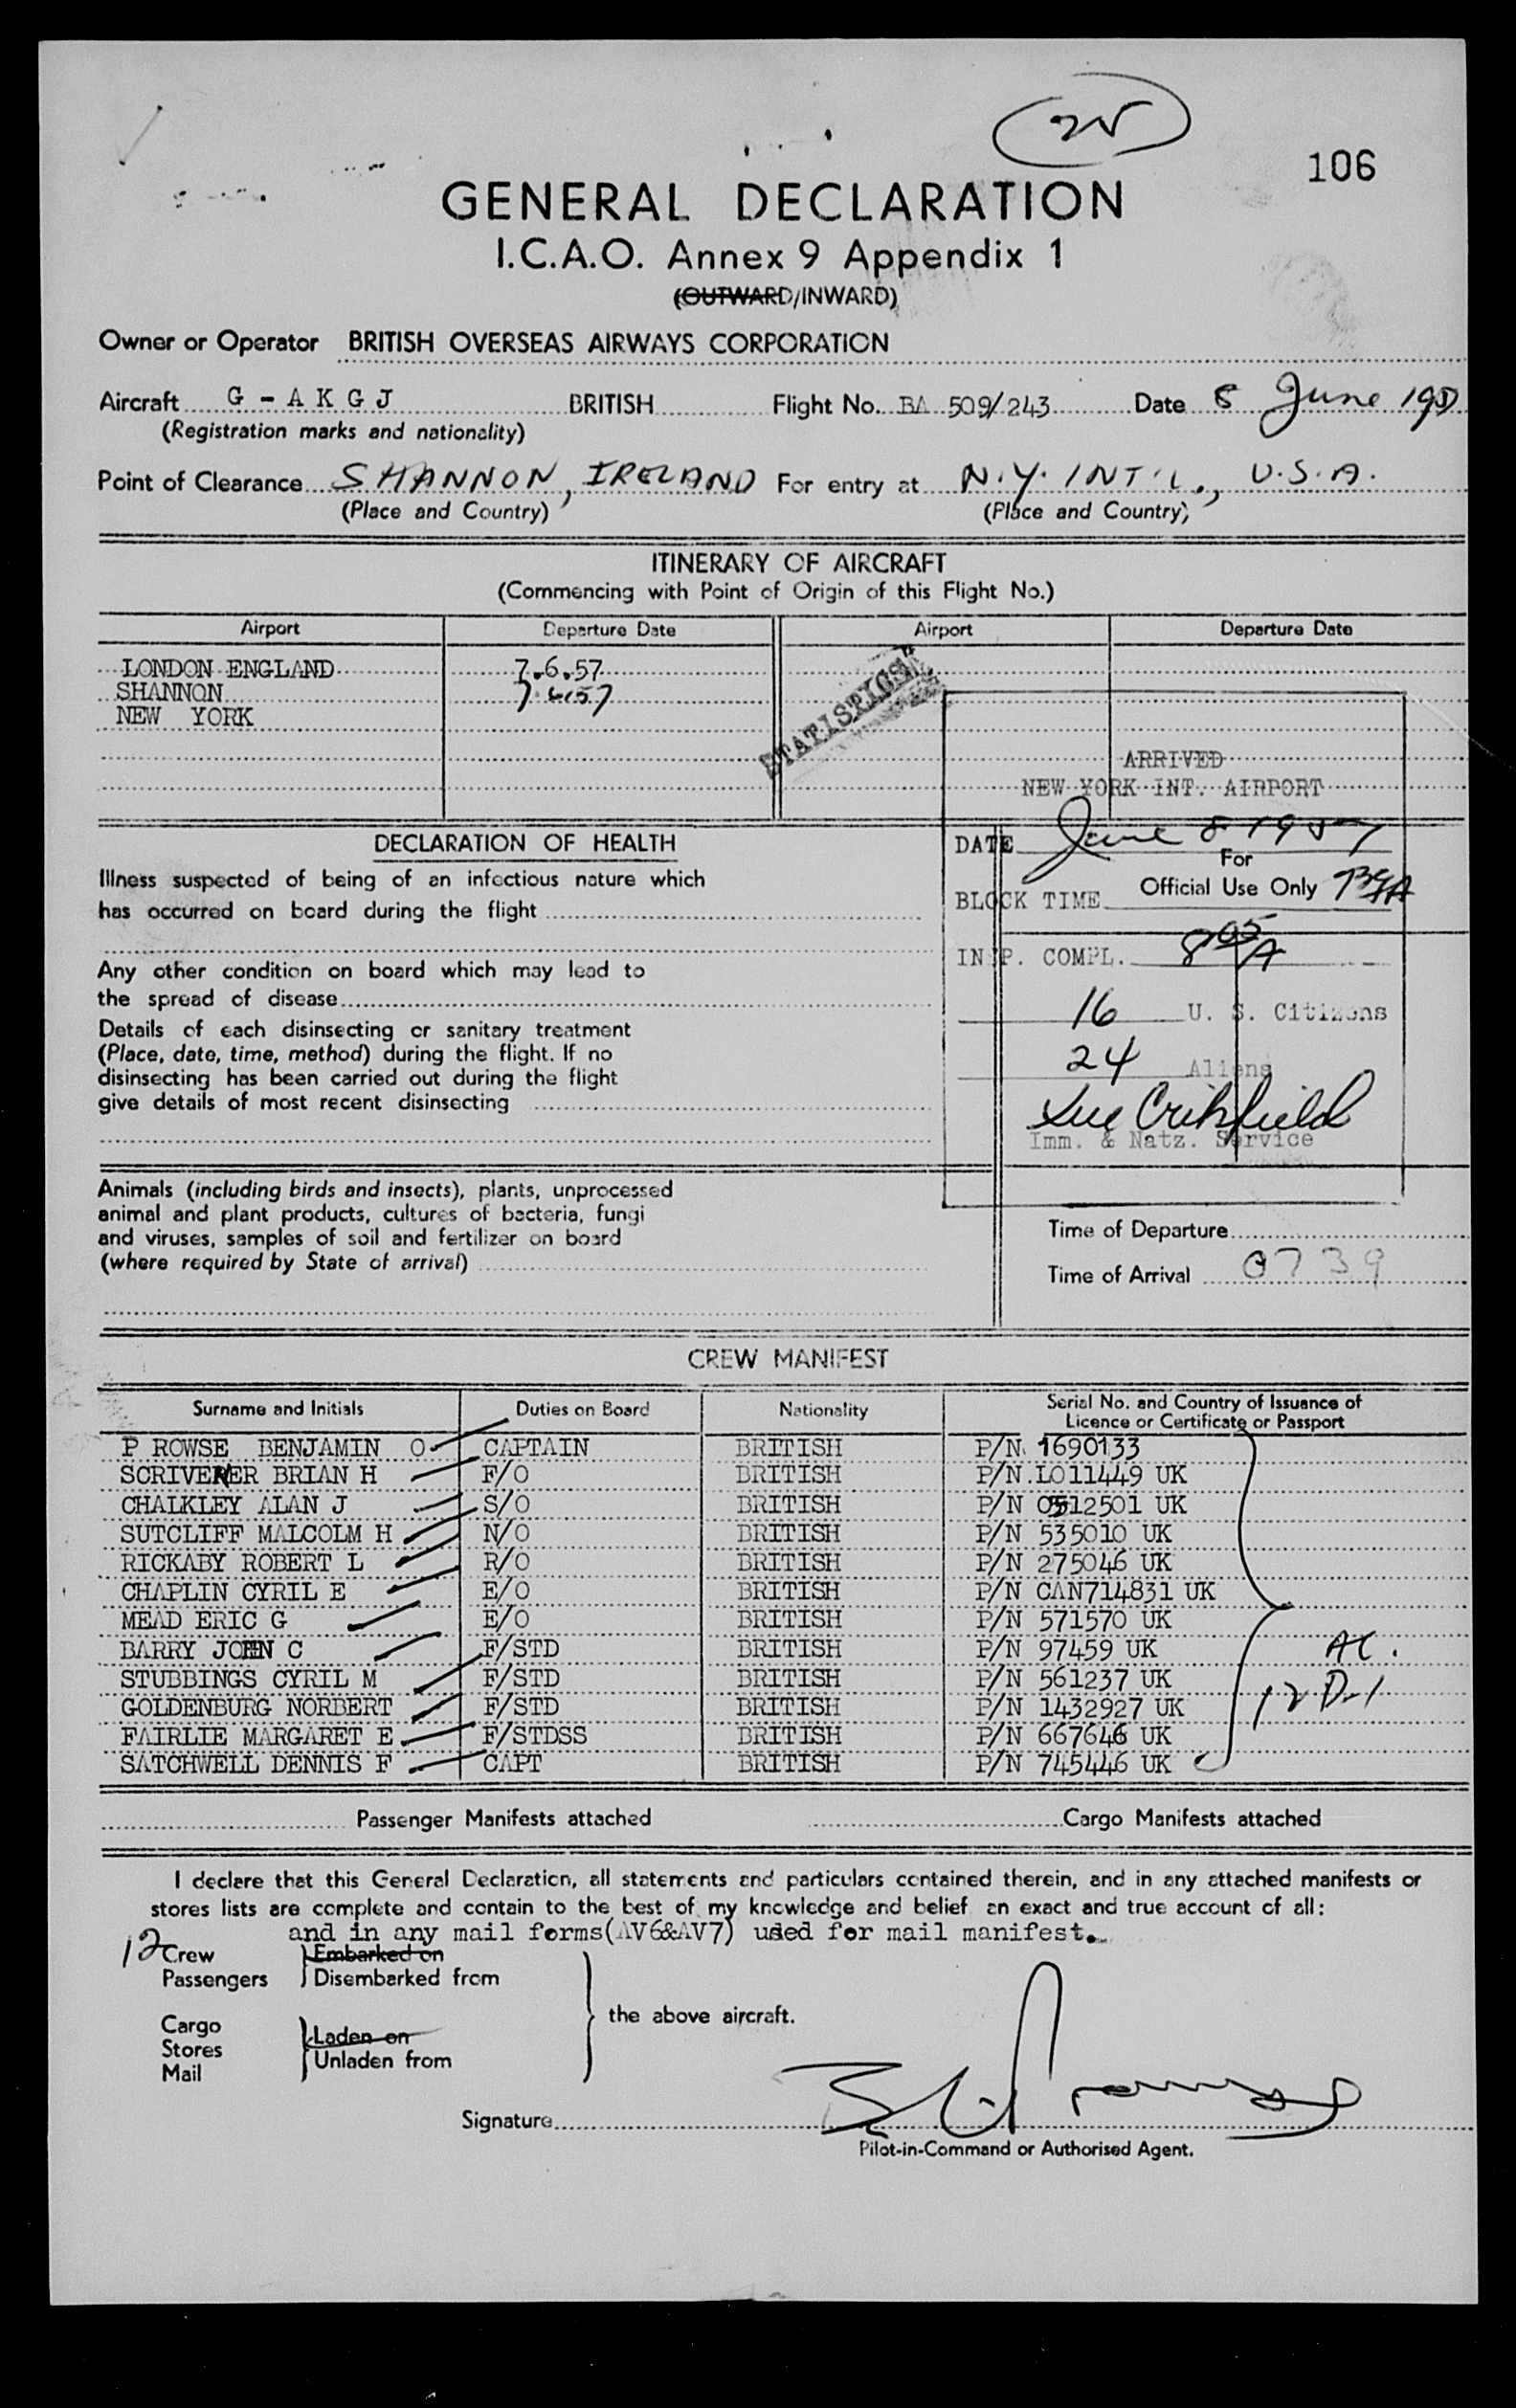 106
GENERAL DECLARATION
I.C.A.O. Annex 9 Appendix 1
(OUTWARD/INWARD)
Owner or Operator BRITISH OVERSEAS AIRWAYS CORPORATION
Aircraft G - A K G J BRITISH Flight No. BA 509/243 Date 8 June 195
(Registration marks and nationality)
Point of Clearance SHANNON, IRELAND For entry at N.Y. INT'L., U.S.A.
(Place and Country) (Place and Country)
ITINERARY OF AIRCRAFT
(Commencing with Point of Origin of this Flight No.)
Airport Departure Date Airport Departure Date
LONDON ENGLAND 7.6.57
SHANNON 7.6.57
NEW YORK
STATISTICS
ARRIVED
NEW YORK INT. AIRPORT
DECLARATION OF HEALTH
Illness suspected of being of an infectious nature which
has occurred on board during the flight
Any other condition on board which may lead to
the spread of disease
Details of each disinsecting or sanitary treatment
(Place, date, time, method) during the flight. If no
disinsecting has been carried out during the flight
give details of most recent disinsecting
DATE June 8 1957
For
Official Use Only
BLOCK TIME
INSP. COMPL. 8 05 A
16 U. S. Citizens
24 Aliens
Sue Crihfield
Imm. & Natz. Service
Animals (including birds and insects), plants, unprocessed
animal and plant products, cultures of bacteria, fungi
and viruses, samples of soil and fertilizer on board
(where required by State of arrival)
Time of Departure
Time of Arrival 0739
CREW MANIFEST
Surname and Initials Duties on Board Nationality Serial No. and Country of Issuance of
Licence or Certificate or Passport
P ROWSE BENJAMIN O CAPTAIN BRITISH P/N 1690133
SCRIVENER BRIAN H F/O BRITISH P/N.LO11449 UK
CHALKLEY ALAN J S/O BRITISH P/N 0512501 UK
SUTCLIFF MALCOLM H N/O BRITISH P/N 535010 UK
RICKABY ROBERT L R/O BRITISH P/N 275046 UK
CHAPLIN CYRIL E E/O BRITISH P/N CAN714831 UK
MEAD ERIC G E/O BRITISH P/N 571570 UK
BARRY JOHN C F/STD BRITISH P/N 97459 UK
STUBBINGS CYRIL M F/STD BRITISH P/N 561237 UK
GOLDENBURG NORBERT F/STD BRITISH P/N 1432927 UK
FAIRLIE MARGARET E F/STDSS BRITISH P/N 667646 UK
SATCHWELL DENNIS F CAPT BRITISH P/N 745446 UK
12 D-1
Passenger Manifests attached Cargo Manifests attached
I declare that this General Declaration, all statements and particulars contained therein, and in any attached manifests or
stores lists are complete and contain to the best of my knowledge and belief an exact and true account of all:
and in any mail forms(AV6&AV7) used for mail manifest.
12 Crew Embarked on
Passengers Disembarked from
the above aircraft.
Cargo
Stores Laden on
Mail Unladen from
Signature
Pilot-in-Command or Authorised Agent.